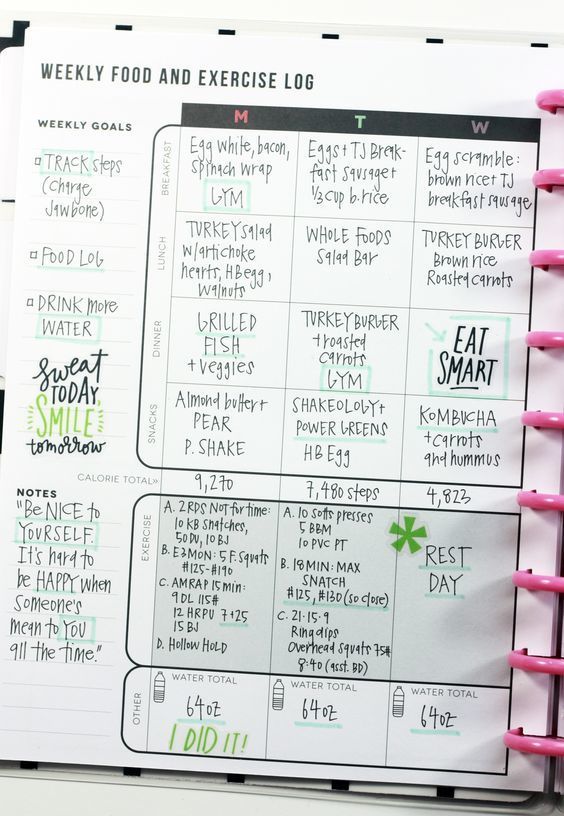 WEEKLY FOOD AND EXERCISE LOG
WEEKLY GOALS
TRACK steps
(charge
Jawbone)
FOOD LOG
DRINK more
WATER
Sweat
TODAY,
SMILE
tomorrow
NOTES
"Be NICE to
YOURSELF.
It's hard to
be HAPPY when
someone's
mean to YOU
all the time."
M T W
BREAKFAST
Egg white, bacon,
spinach wrap
GYM
Eggs + TJ Break-
fast sausage +
1/3 cup b. rice
Egg scramble:
brown rice + TJ
breakfast sausage
LUNCH
TURKEY salad
w/artichoke
hearts, HB egg,
walnuts
WHOLE FOODS
Salad Bar
TURKEY BURGER
Brown rice
Roasted carrots
DINNER
GRILLED
FISH
+ veggies
TURKEY BURGER
+ roasted
carrots
GYM
EAT
SMART
SNACKS
Almond butter +
PEAR
P. SHAKE
SHAKEOLOGY +
POWER GREENS
HB Egg
KOMBUCHA
+ carrots
and hummus
CALORIE TOTAL»
9,270
7,480 steps
4,823
EXERCISE
A. 2 RDS NOT for time:
10 KB snatches,
50 DU, 10 BJ
B. E3MON: 5 F. squats
#125-#190
C. AMRAP 15 min:
9 DL 115#
12 HRPU 7+25
15 BJ
D. Hollow Hold
A. 10 sotts presses
5 BBM
10 PVC PT
B. 18 MIN: MAX
SNATCH
#125, #130 (so close)
C. 21-15-9
Ring dips
Overhead squats 75#
8:40 (asst. BD)
REST
DAY
OTHER
WATER TOTAL
64oz
I DID IT!
WATER TOTAL
64oz
WATER TOTAL
64oz